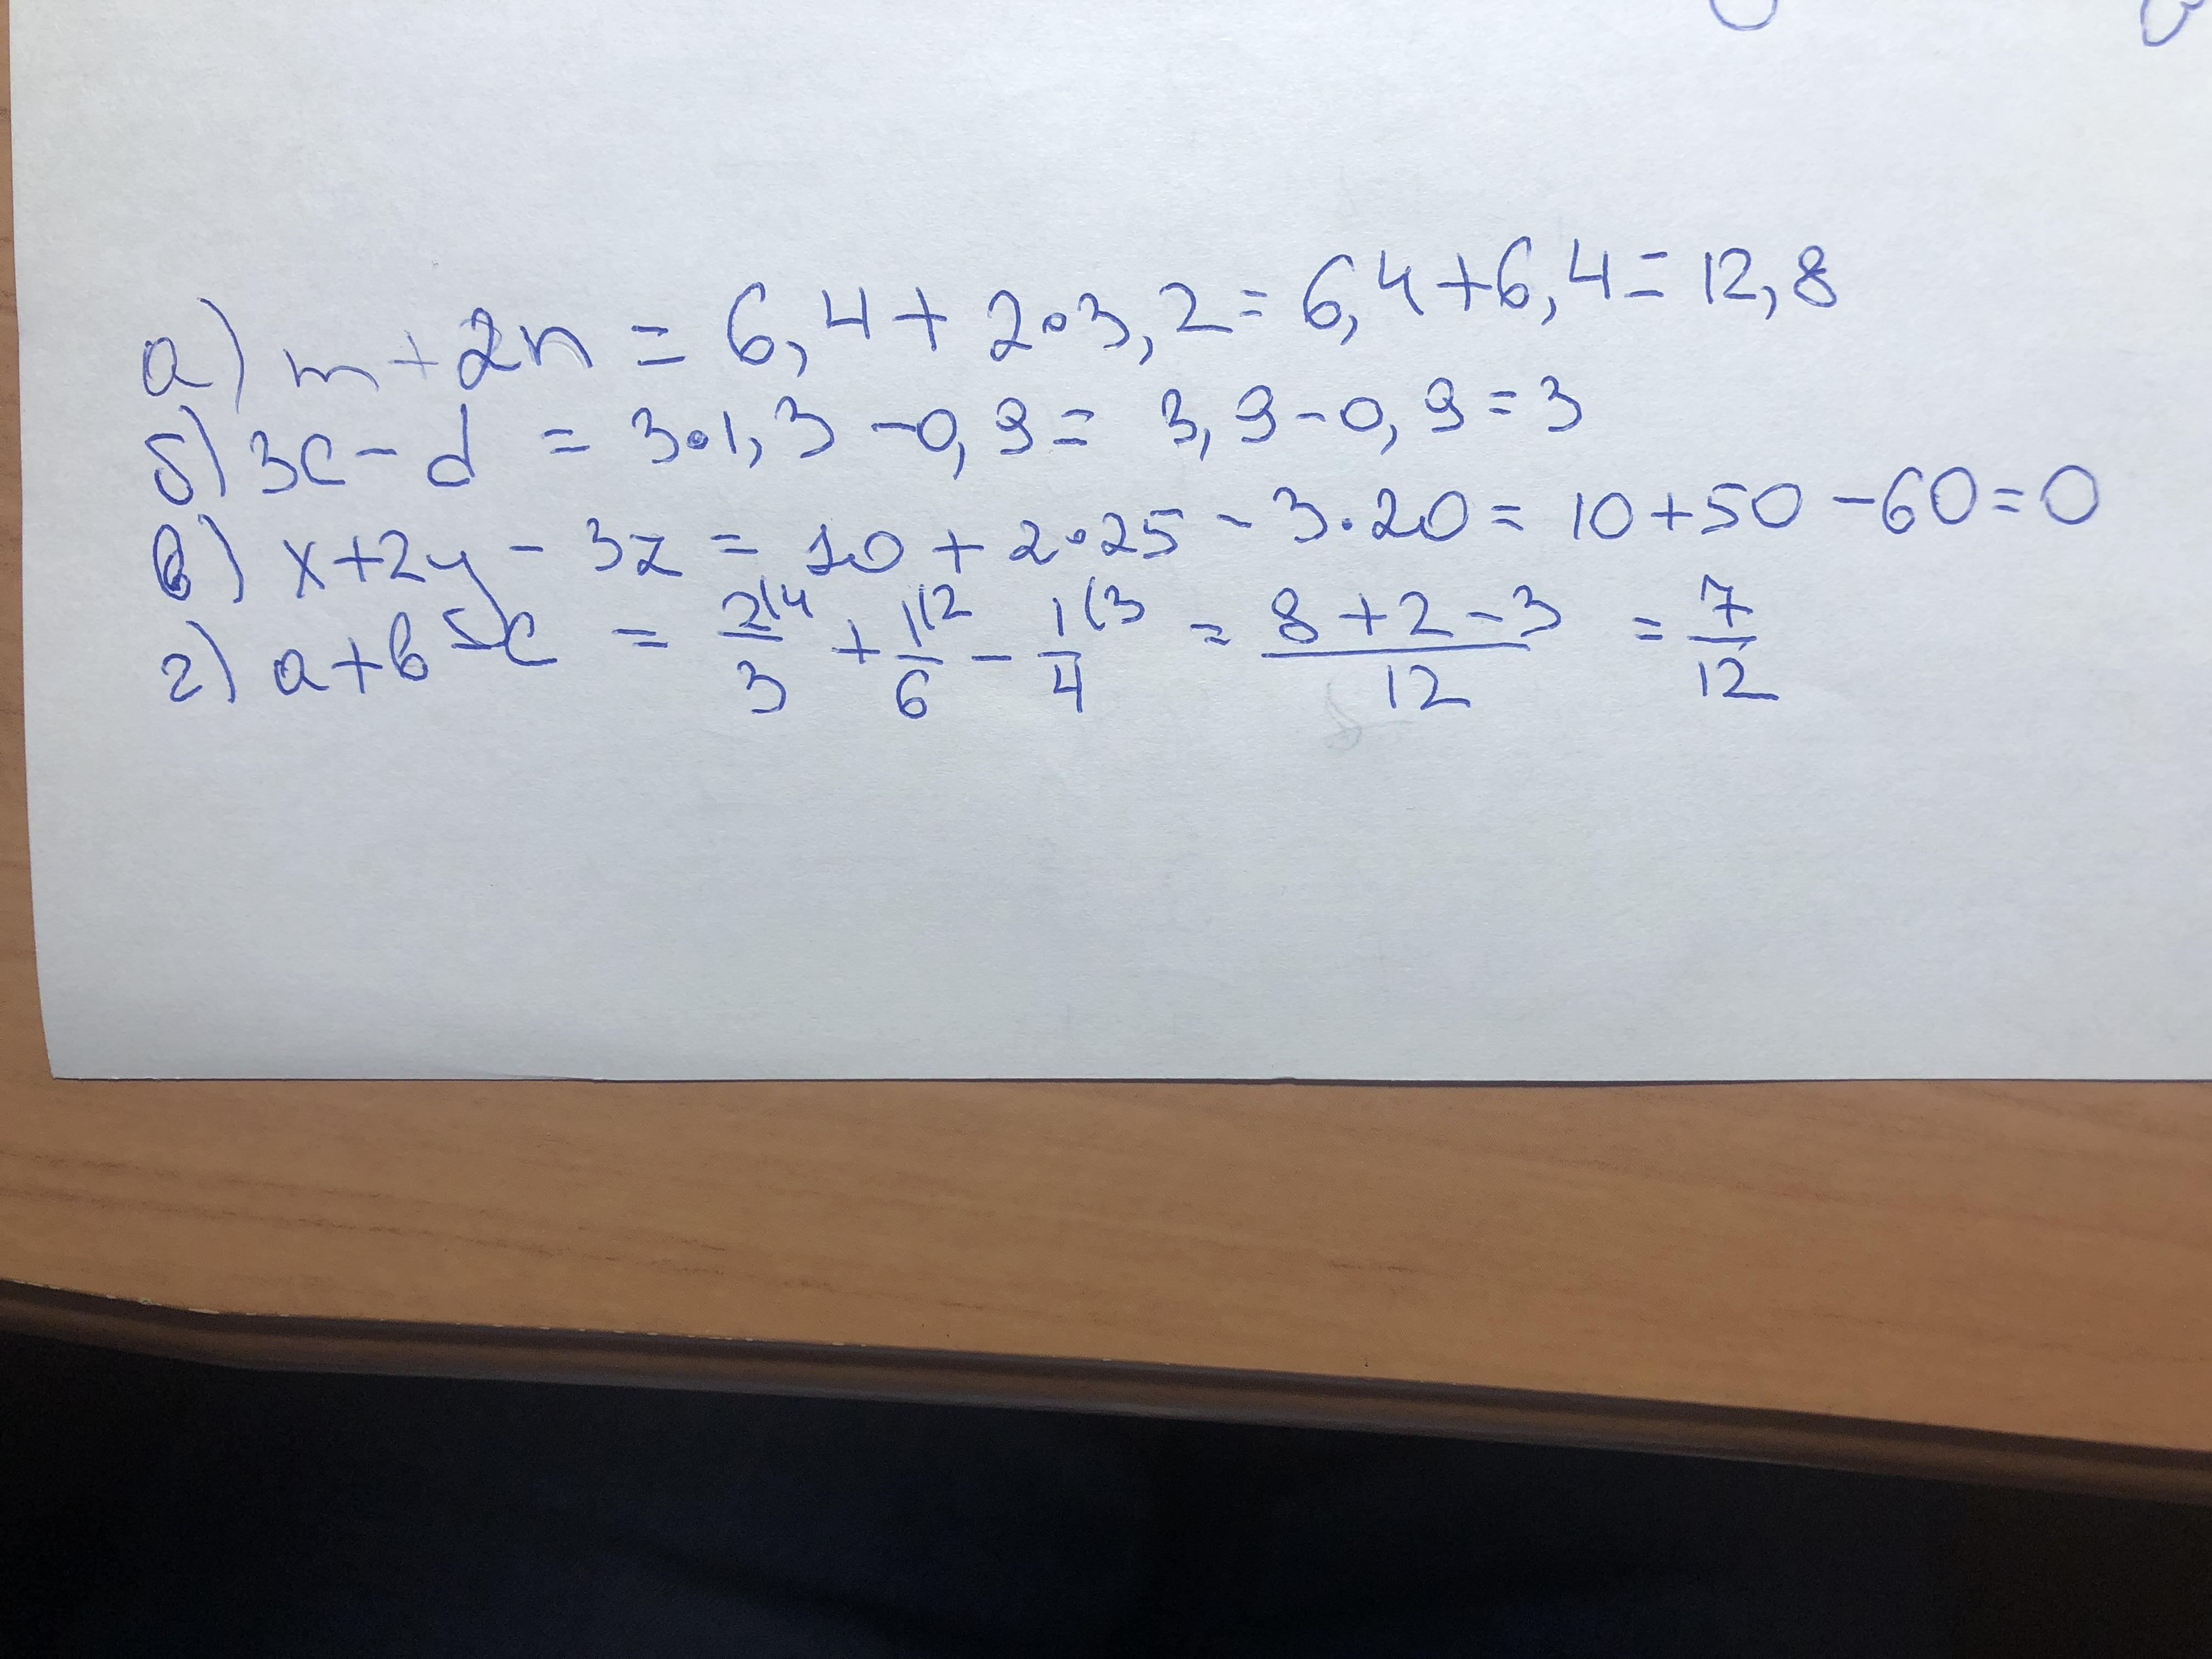 а) m+2n = 6,4+2•3,2= 6,4+6,4= 12,8
б) 3c-d = 3•1,3-0,9= 3,9-0,9=3
в) x+2y-3z = 10+2•25-3·20= 10+50-60=0
г) a+b-c = 2(4/3 + 1(2/6 - 1(3/4 = 8+2-3/12 = 7/12